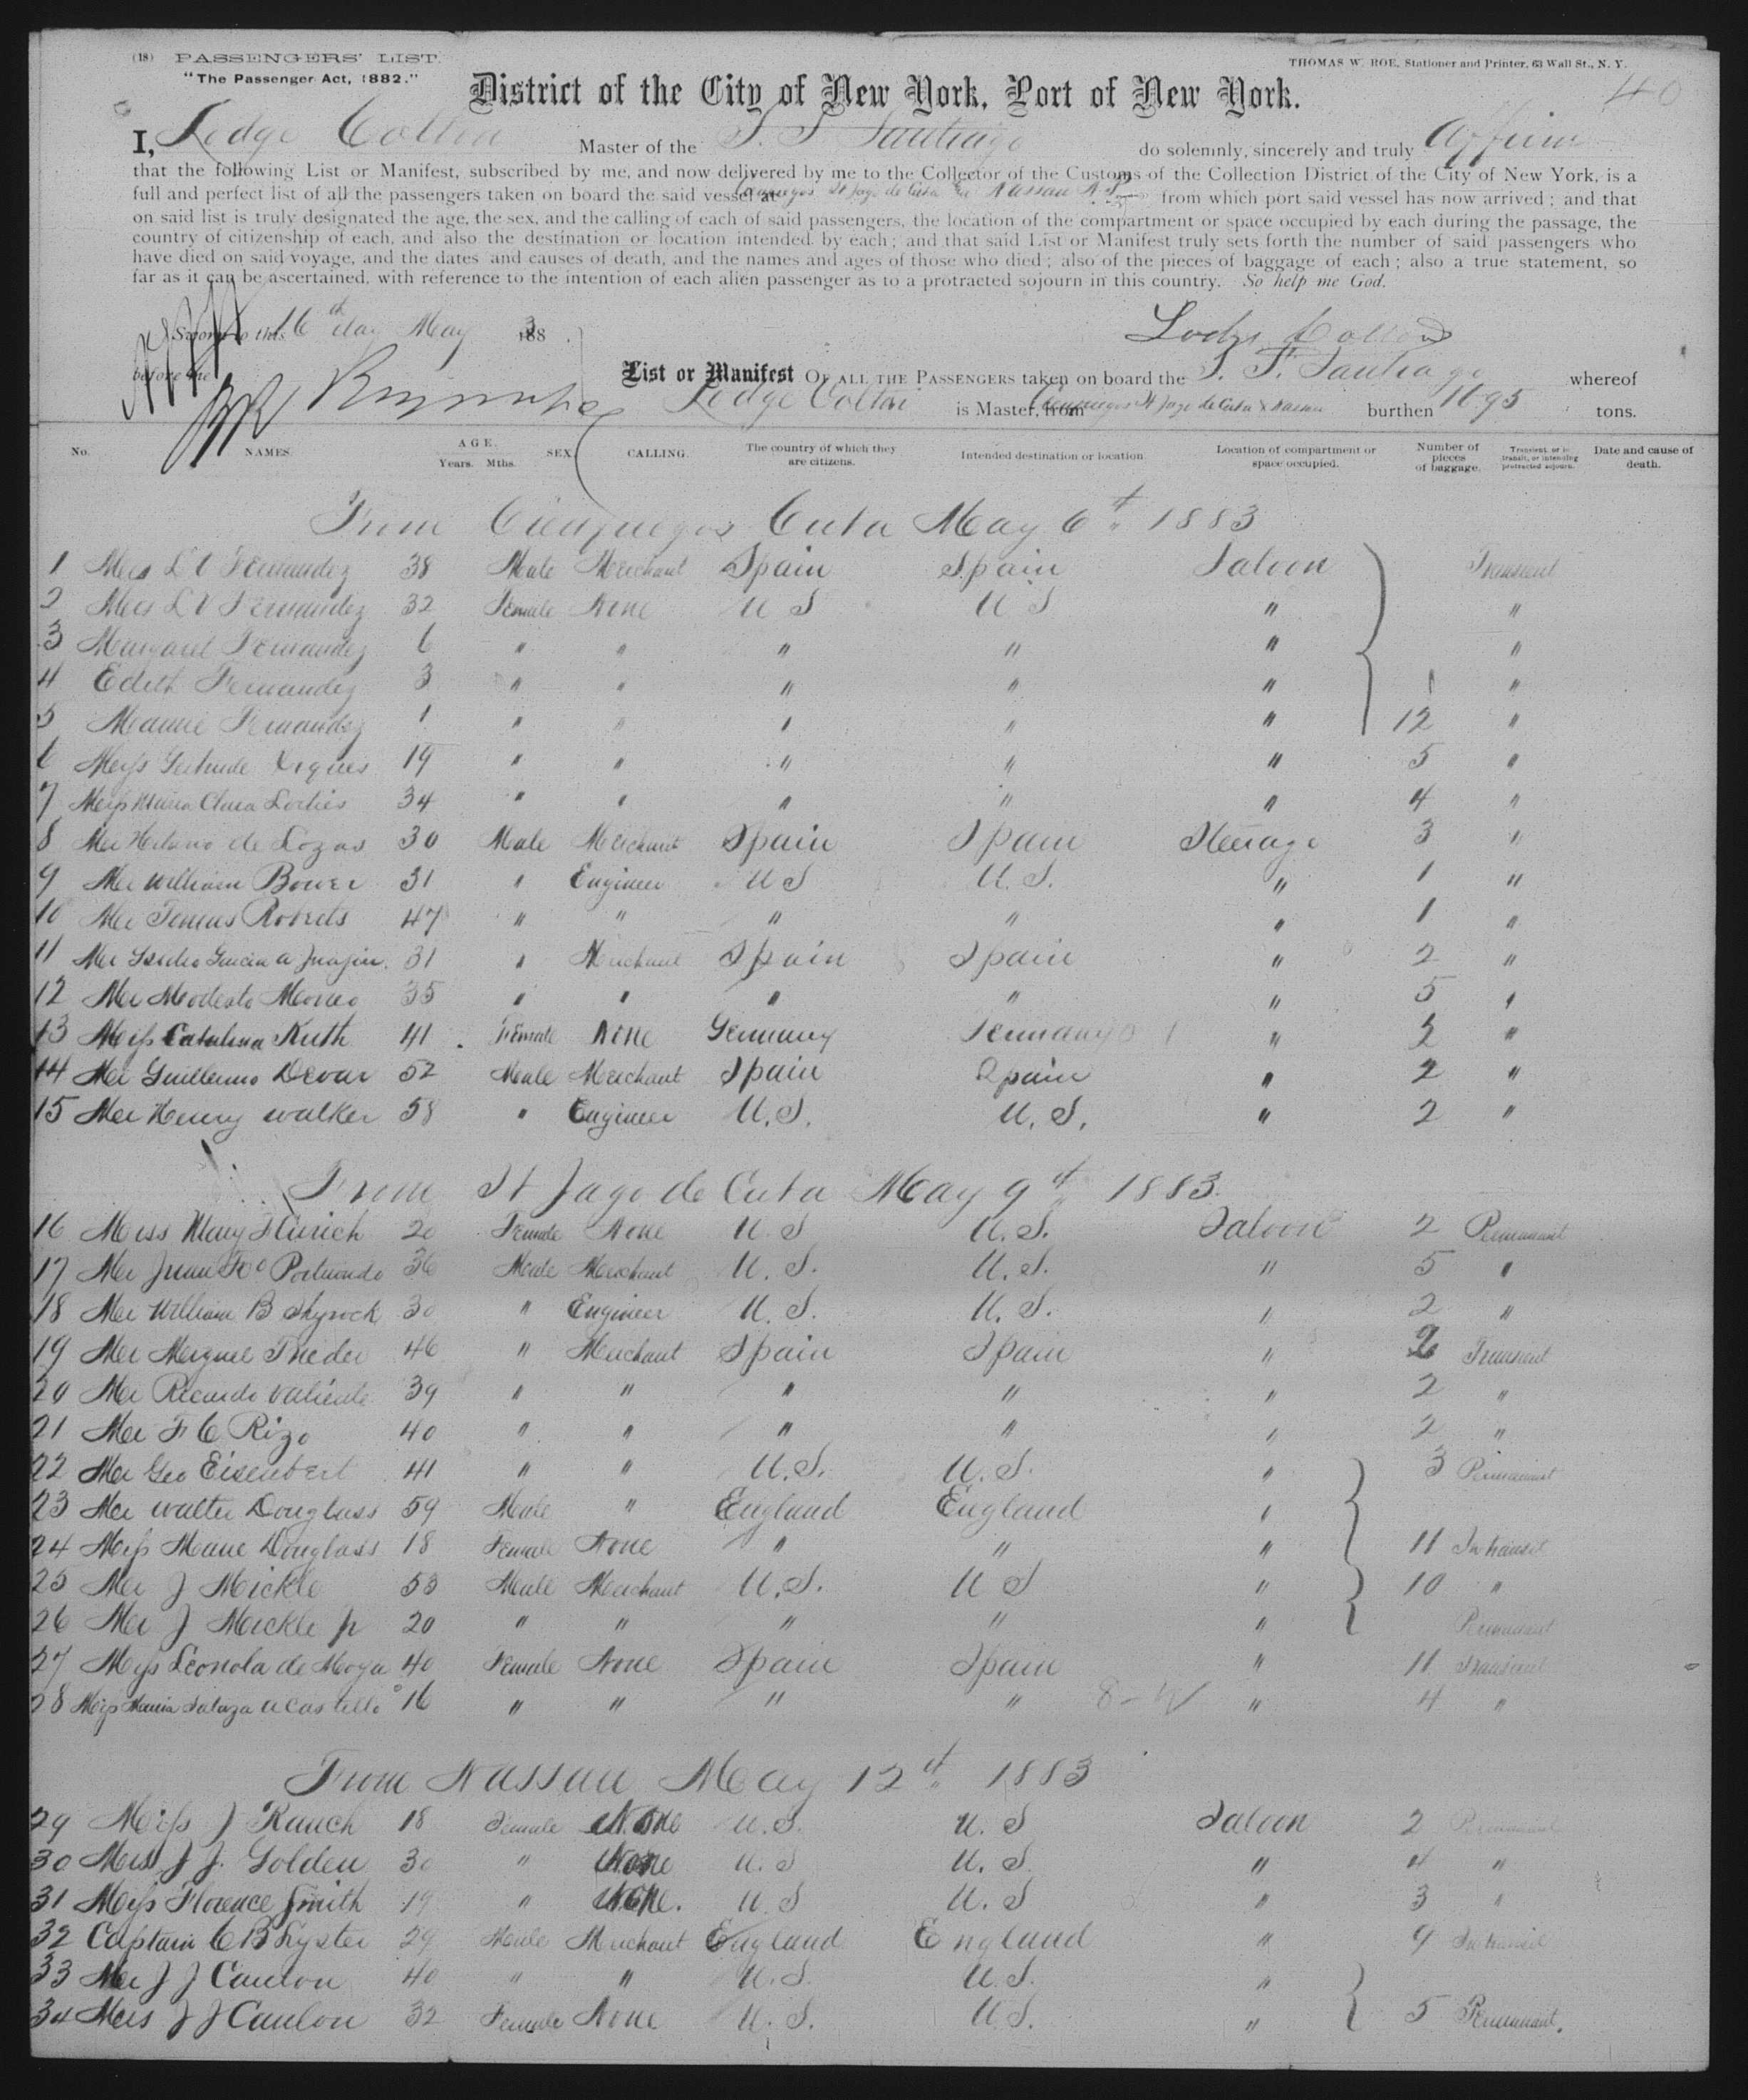 (18) PASSENGERS' LIST.
"The Passenger Act, 1882."
THOMAS W. ROE, Stationer and Printer, 63 Wall St., N. Y.
40
District of the City of New York, Port of New York.
I, Lodge Colton Master of the S. S Santiago do solemnly, sincerely and truly affirm
that the following List or Manifest, subscribed by me, and now delivered by me to the Collector of the Customs of the Collection District of the City of New York, is a
full and perfect list of all the passengers taken on board the said vessel at Cienfuegos St Jago de Cuba Nassau N. P. from which port said vessel has now arrived; and that
on said list is truly designated the age, the sex, and the calling of each of said passengers, the location of the compartment or space occupied by each during the passage, the
country of citizenship of each, and also the destination or location intended by each; and that said List or Manifest truly sets forth the number of said passengers who
have died on said voyage, and the dates and causes of death, and the names and ages of those who died; also of the pieces of baggage of each; also a true statement, so
far as it can be ascertained, with reference to the intention of each alien passenger as to a protracted sojourn in this country. So help me God.
Sworn to this 16th day May 1883
Lodge Colton
before me
List or Manifest OF ALL THE PASSENGERS taken on board the S. S. Santiago whereof
Lodge Colton is Master, from Cienfuegos St Jago de Cuba & Nassau burthen 1695 tons.
No. NAMES. AGE. Years. Mths. SEX. CALLING. The country of which they are citizens. Intended destination or location. Location of compartment or space occupied. Number of pieces of baggage. Transient, or in transit, or intending protracted sojourn. Date and cause of death.
From Cienfuegos Cuba May 6th 1883
1 L Fernandez 38 Male Merchant Spain Spain Saloon Transient
2 Mrs L Fernandez 32 Female None U S U S " "
3 Margaret Fernandez 6 " " " " " "
4 Edith Fernandez 3 " " " " " 1 "
5 Mamie Fernandez 1 " " " " " 12 "
6 Miss Gertrude 19 " " " " " 5 "
7 Miss Maria Clara 34 " " " " " 4 "
8 Mr de Lozas 30 Male Merchant Spain Spain Steerage 3 "
9 Mr William Bower 31 " Engineer U S U. S. " 1 "
10 Mr Roberts 47 " " " " " 1 "
11 Mr Garcia a 31 " Merchant Spain Spain " 2 "
12 Mr Modesto 35 " " " " " 5 "
13 Miss Catalina Kuth 41 Female None Germany Germany " 2 "
14 Mr Guillermo Devar 52 Male Merchant Spain Spain " 2 "
15 Mr Henry Walker 58 " Engineer U. S. U. S. " 2 "
From St Jago de Cuba May 9th 1883
16 Miss Mary 20 Female None U. S U. S. Saloon 2 Permanant
17 Mr Juan Fco Portuondo 36 Male Merchant U. S. U. S. " 5 "
18 Mr William B Shyrock 30 " Engineer U. S. U. S. " 2 "
19 Mr Miguel 46 " Merchant Spain Spain " 2 Transient
20 Mr Ricardo Valiente 39 " " " " " 2 "
21 Mr F C Rizo 40 " " " " " 2 "
22 Mr Geo Eisenbert 41 " " U. S. U. S. " 3 Permanant
23 Mr Walter Douglass 59 Male " England England "
24 Miss Marie Douglass 18 Female None " " " 11 In transit
25 Mr J Mickle 53 Male Merchant U. S. U S " 10 "
26 Mr J Mickle Jr 20 " " " " " Permanant
27 Miss Leonola de Moya 40 Female None Spain Spain " 11 Transient
28 Miss Maria 16 " " " " " 4 "
From Nassau May 12th 1883
29 Miss J Rauch 18 Female None U. S. U. S Saloon 2 Permanant
30 Mrs J J. Golden 30 " None U. S U. S " 4 "
31 Miss Florence Smith 19 " None. U S U. S " 3 "
32 Captain C B Lyster 29 Male Merchant England England " 9 In transit
33 Mr J J Canlon 40 " " U. S. U. S. "
34 Mrs J J Canlon 32 Female None U. S. U. S. " 5 Permanant.